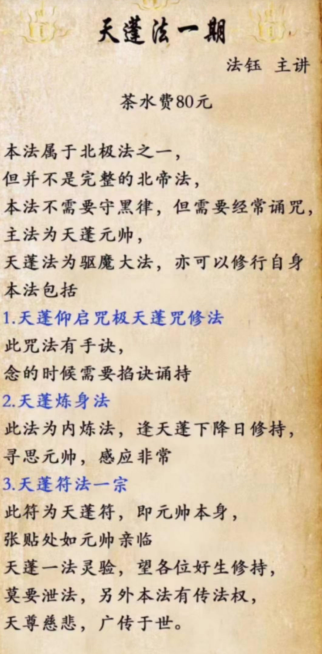 天蓬法一期
法钰 主讲
茶水费80元
本法属于北极法之一，
但并不是完整的北帝法，
本法不需要守黑律，但需要经常诵咒，
主法为天蓬元帅，
天蓬法为驱魔大法，亦可以修行自身
本法包括
1.天蓬仰启咒极天蓬咒修法
此咒法有手诀，
念的时候需要掐诀诵持
2.天蓬炼身法
此法为内炼法，逢天蓬下降日修持，
寻思元帅，感应非常
3.天蓬符法一宗
此符为天蓬符，即元帅本身，
张贴处如元帅亲临
天蓬一法灵验，望各位好生修持，
莫要泄法，另外本法有传法权，
天尊慈悲，广传于世。